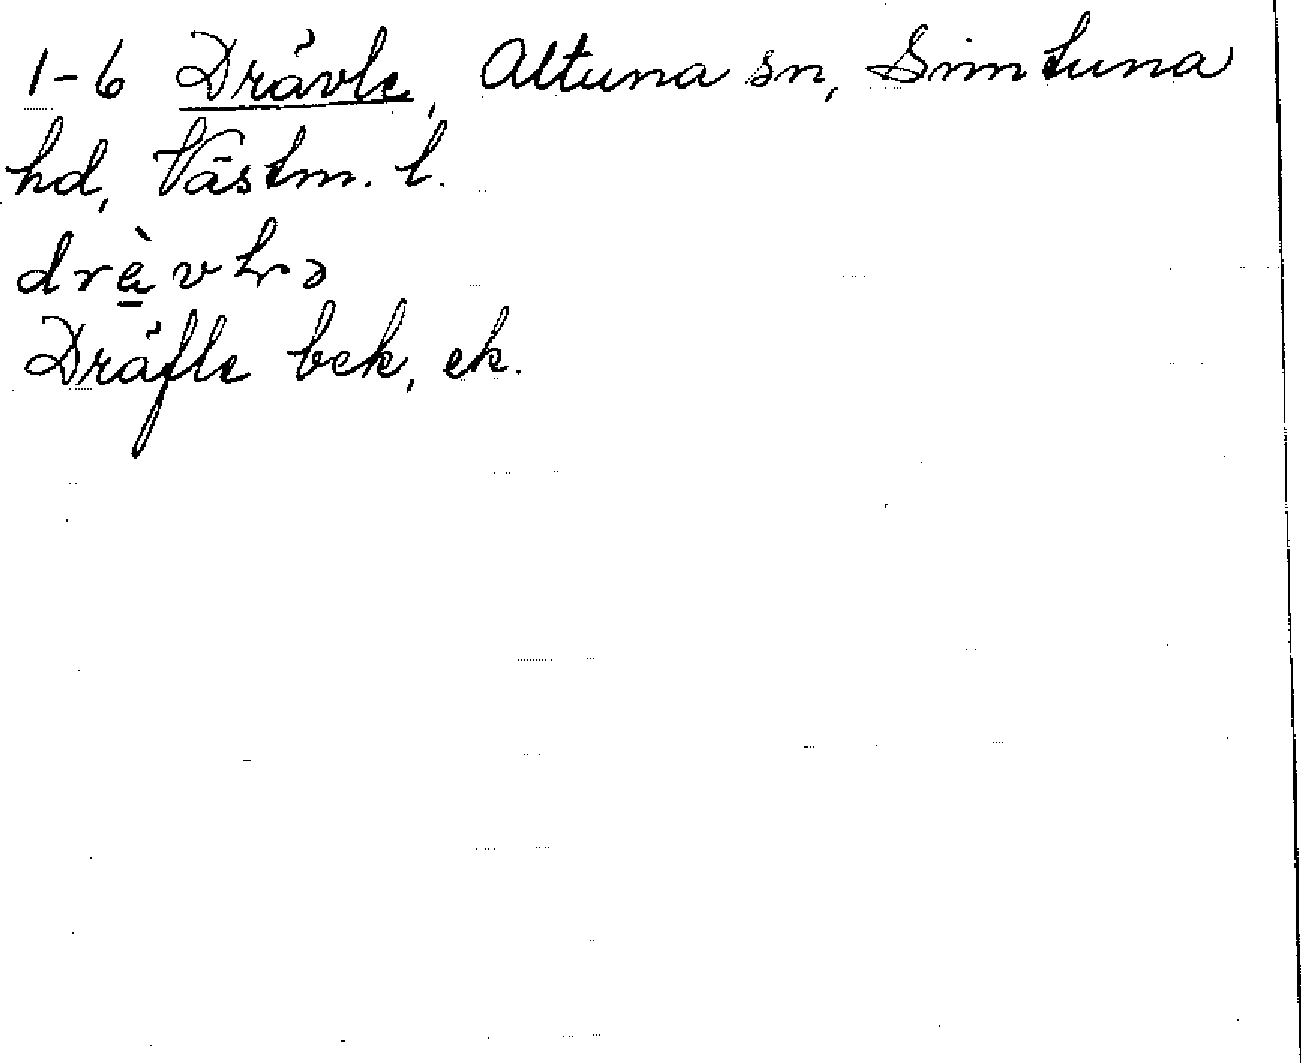 1-6 Drävle, Altuna sn, Simtuna
hd, Västm. l.
drä̀vlə
Dräfle bek, ek.